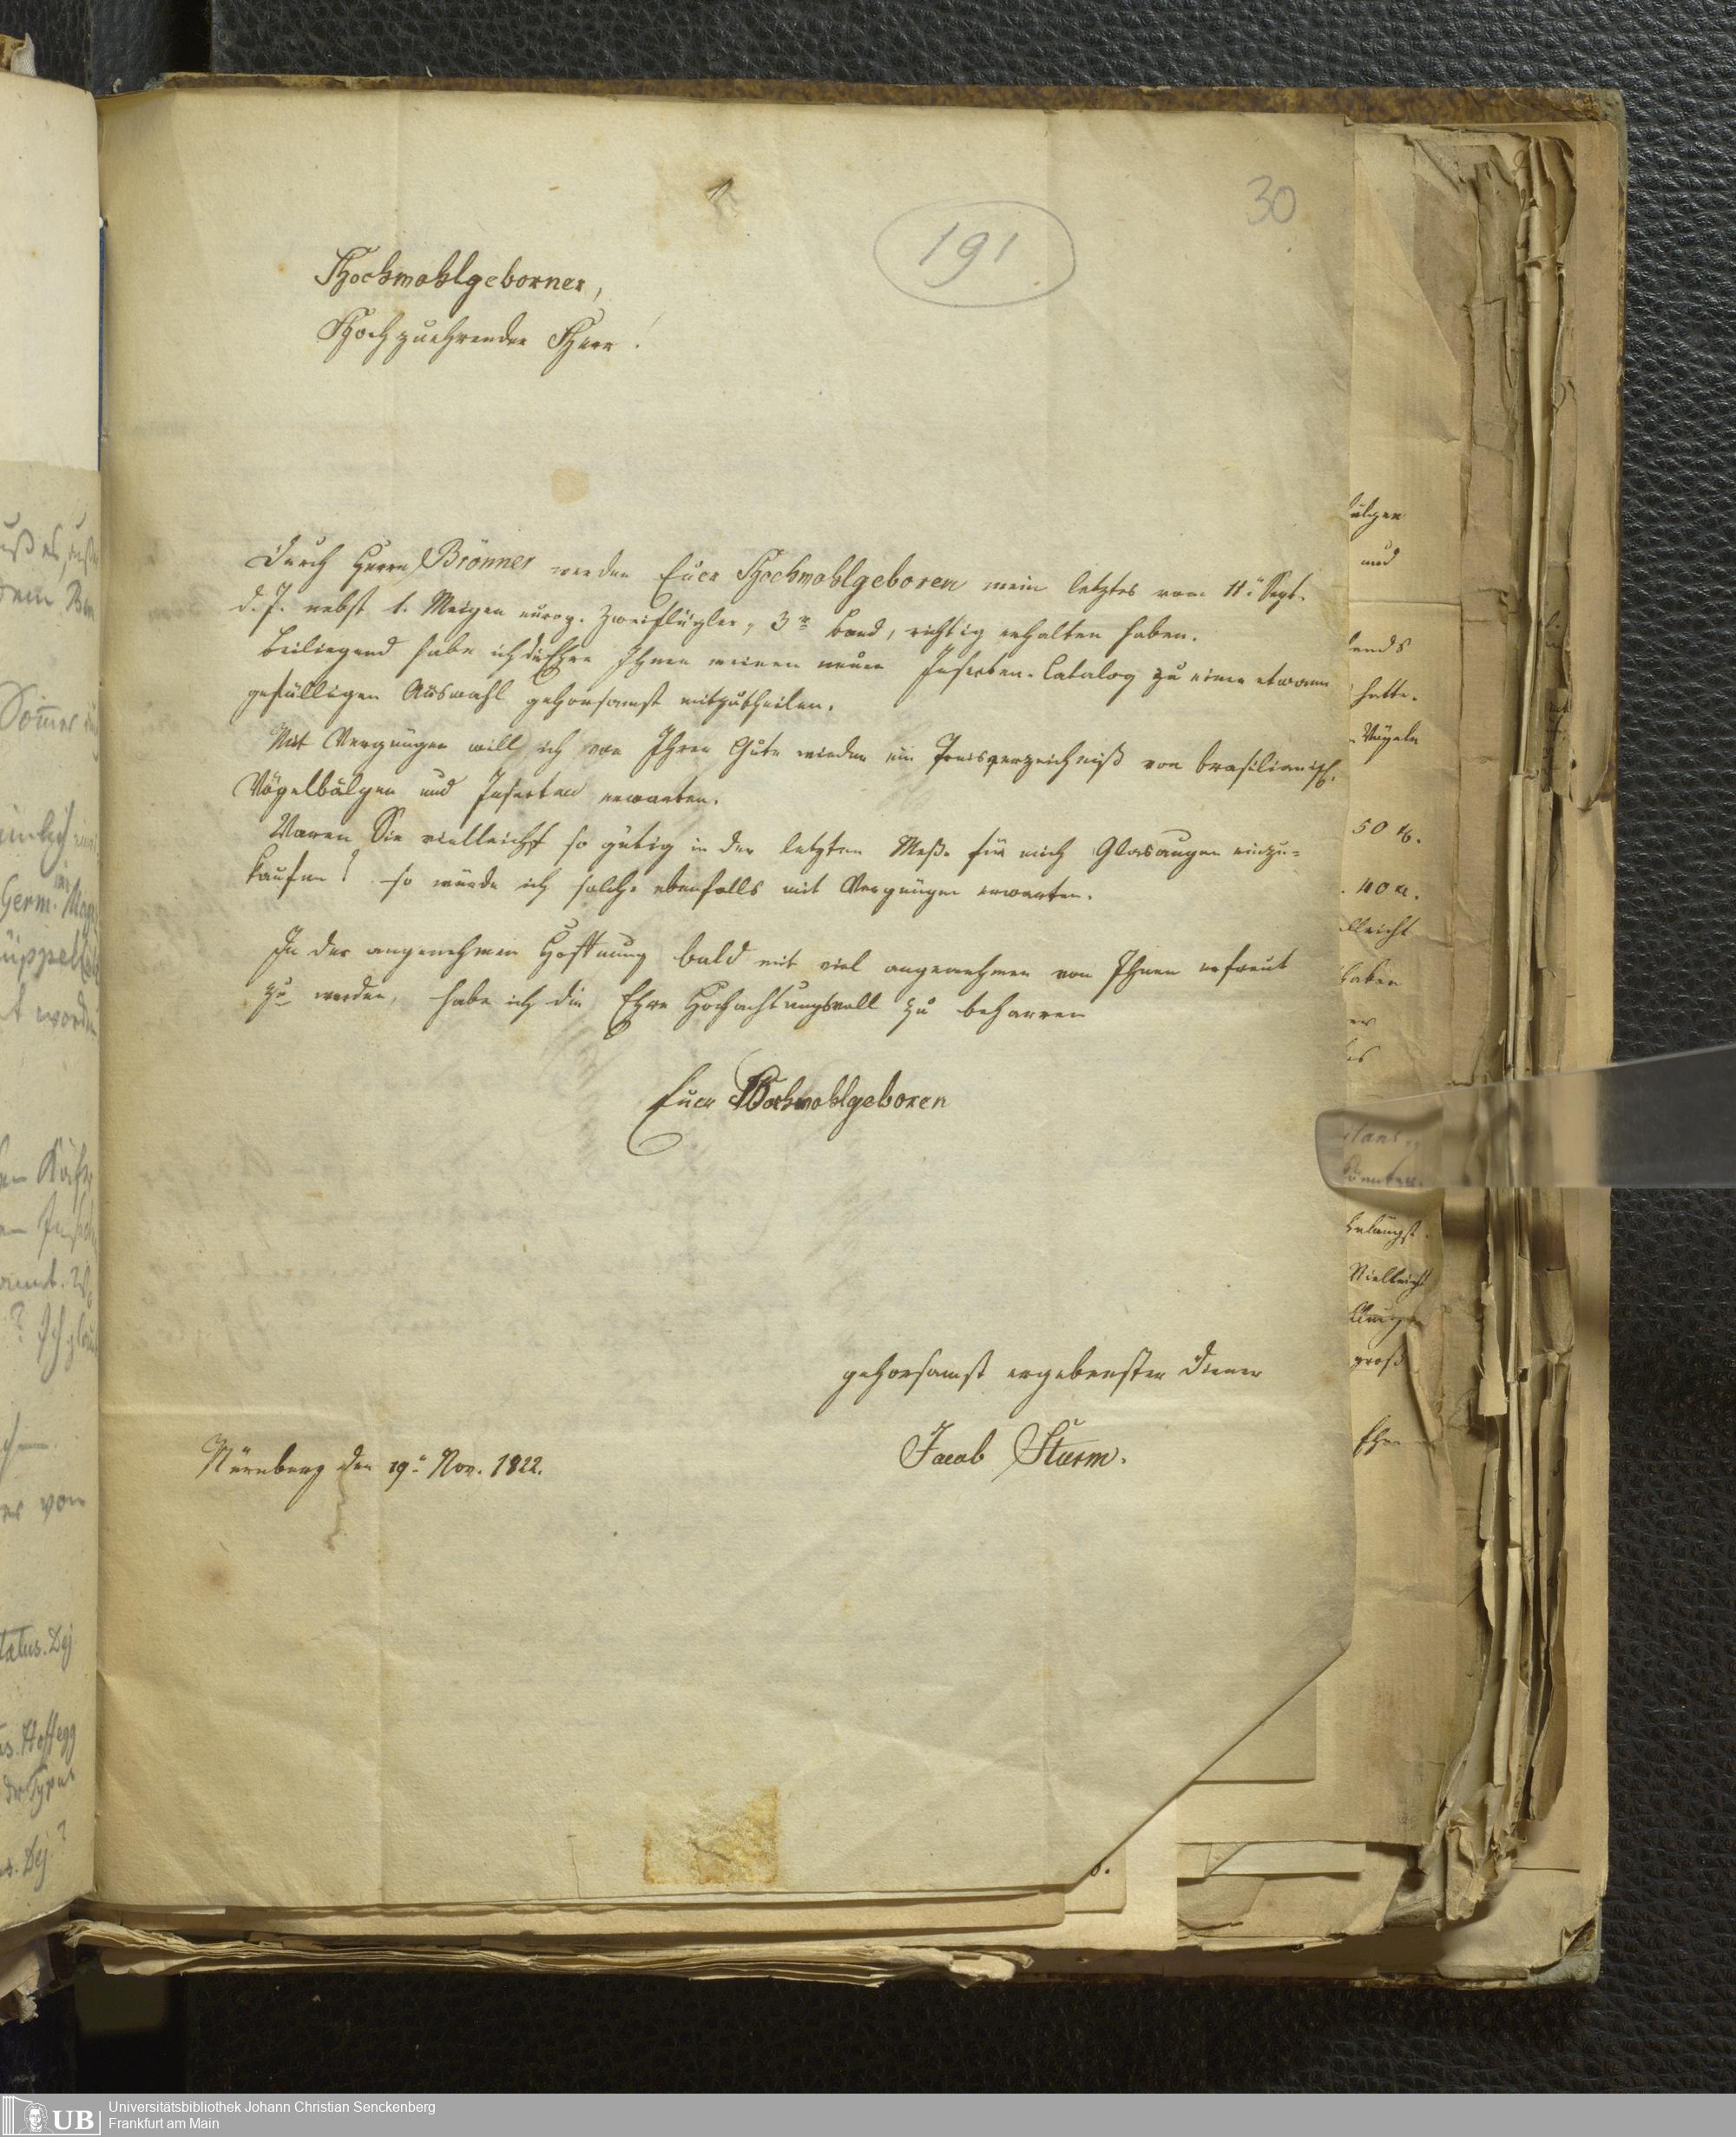 30
191
Hochwohlgeborner,
Hochzuehrender Herr!
Durch Herrn Brönner werden Euer Hochwohlgeboren mein letztes vom 11. Sept.
d. J. nebst 1. Meigen europ. Zweiflügler, 3r Band, richtig erhalten haben.
Beiliegend habe ich die Ehre Ihnen meinen neuen Insecten-Catalog zu einer etwann
gefälligen Auswahl gehorsamst mitzutheilen.
Mit Vergnügen will ich von Ihrer Güte wieder ein Preisverzeichniß von brasilianisch.
Vögelbälgen und Insecten erwarten.
Waren Sie vielleicht so gütig in der letzten Meße für mich Glasaugen einzu-
kaufen? so würde ich solche ebenfalls mit Vergnügen erwarten.
In der angenehmen Hoffnung bald mit viel angenehmen von Ihnen erfreut
zu werden, habe ich die Ehre Hochachtungsvoll zu beharren
Euer Hochwohlgeboren
gehorsamst ergebenster Diener
Jacob Sturm.
Nürnberg den 19. Nov. 1822.
und
hatte.
Vögeln
50 x.
40 x.
Vielleicht
groß
UB
Universitätsbibliothek Johann Christian Senckenberg
Frankfurt am Main